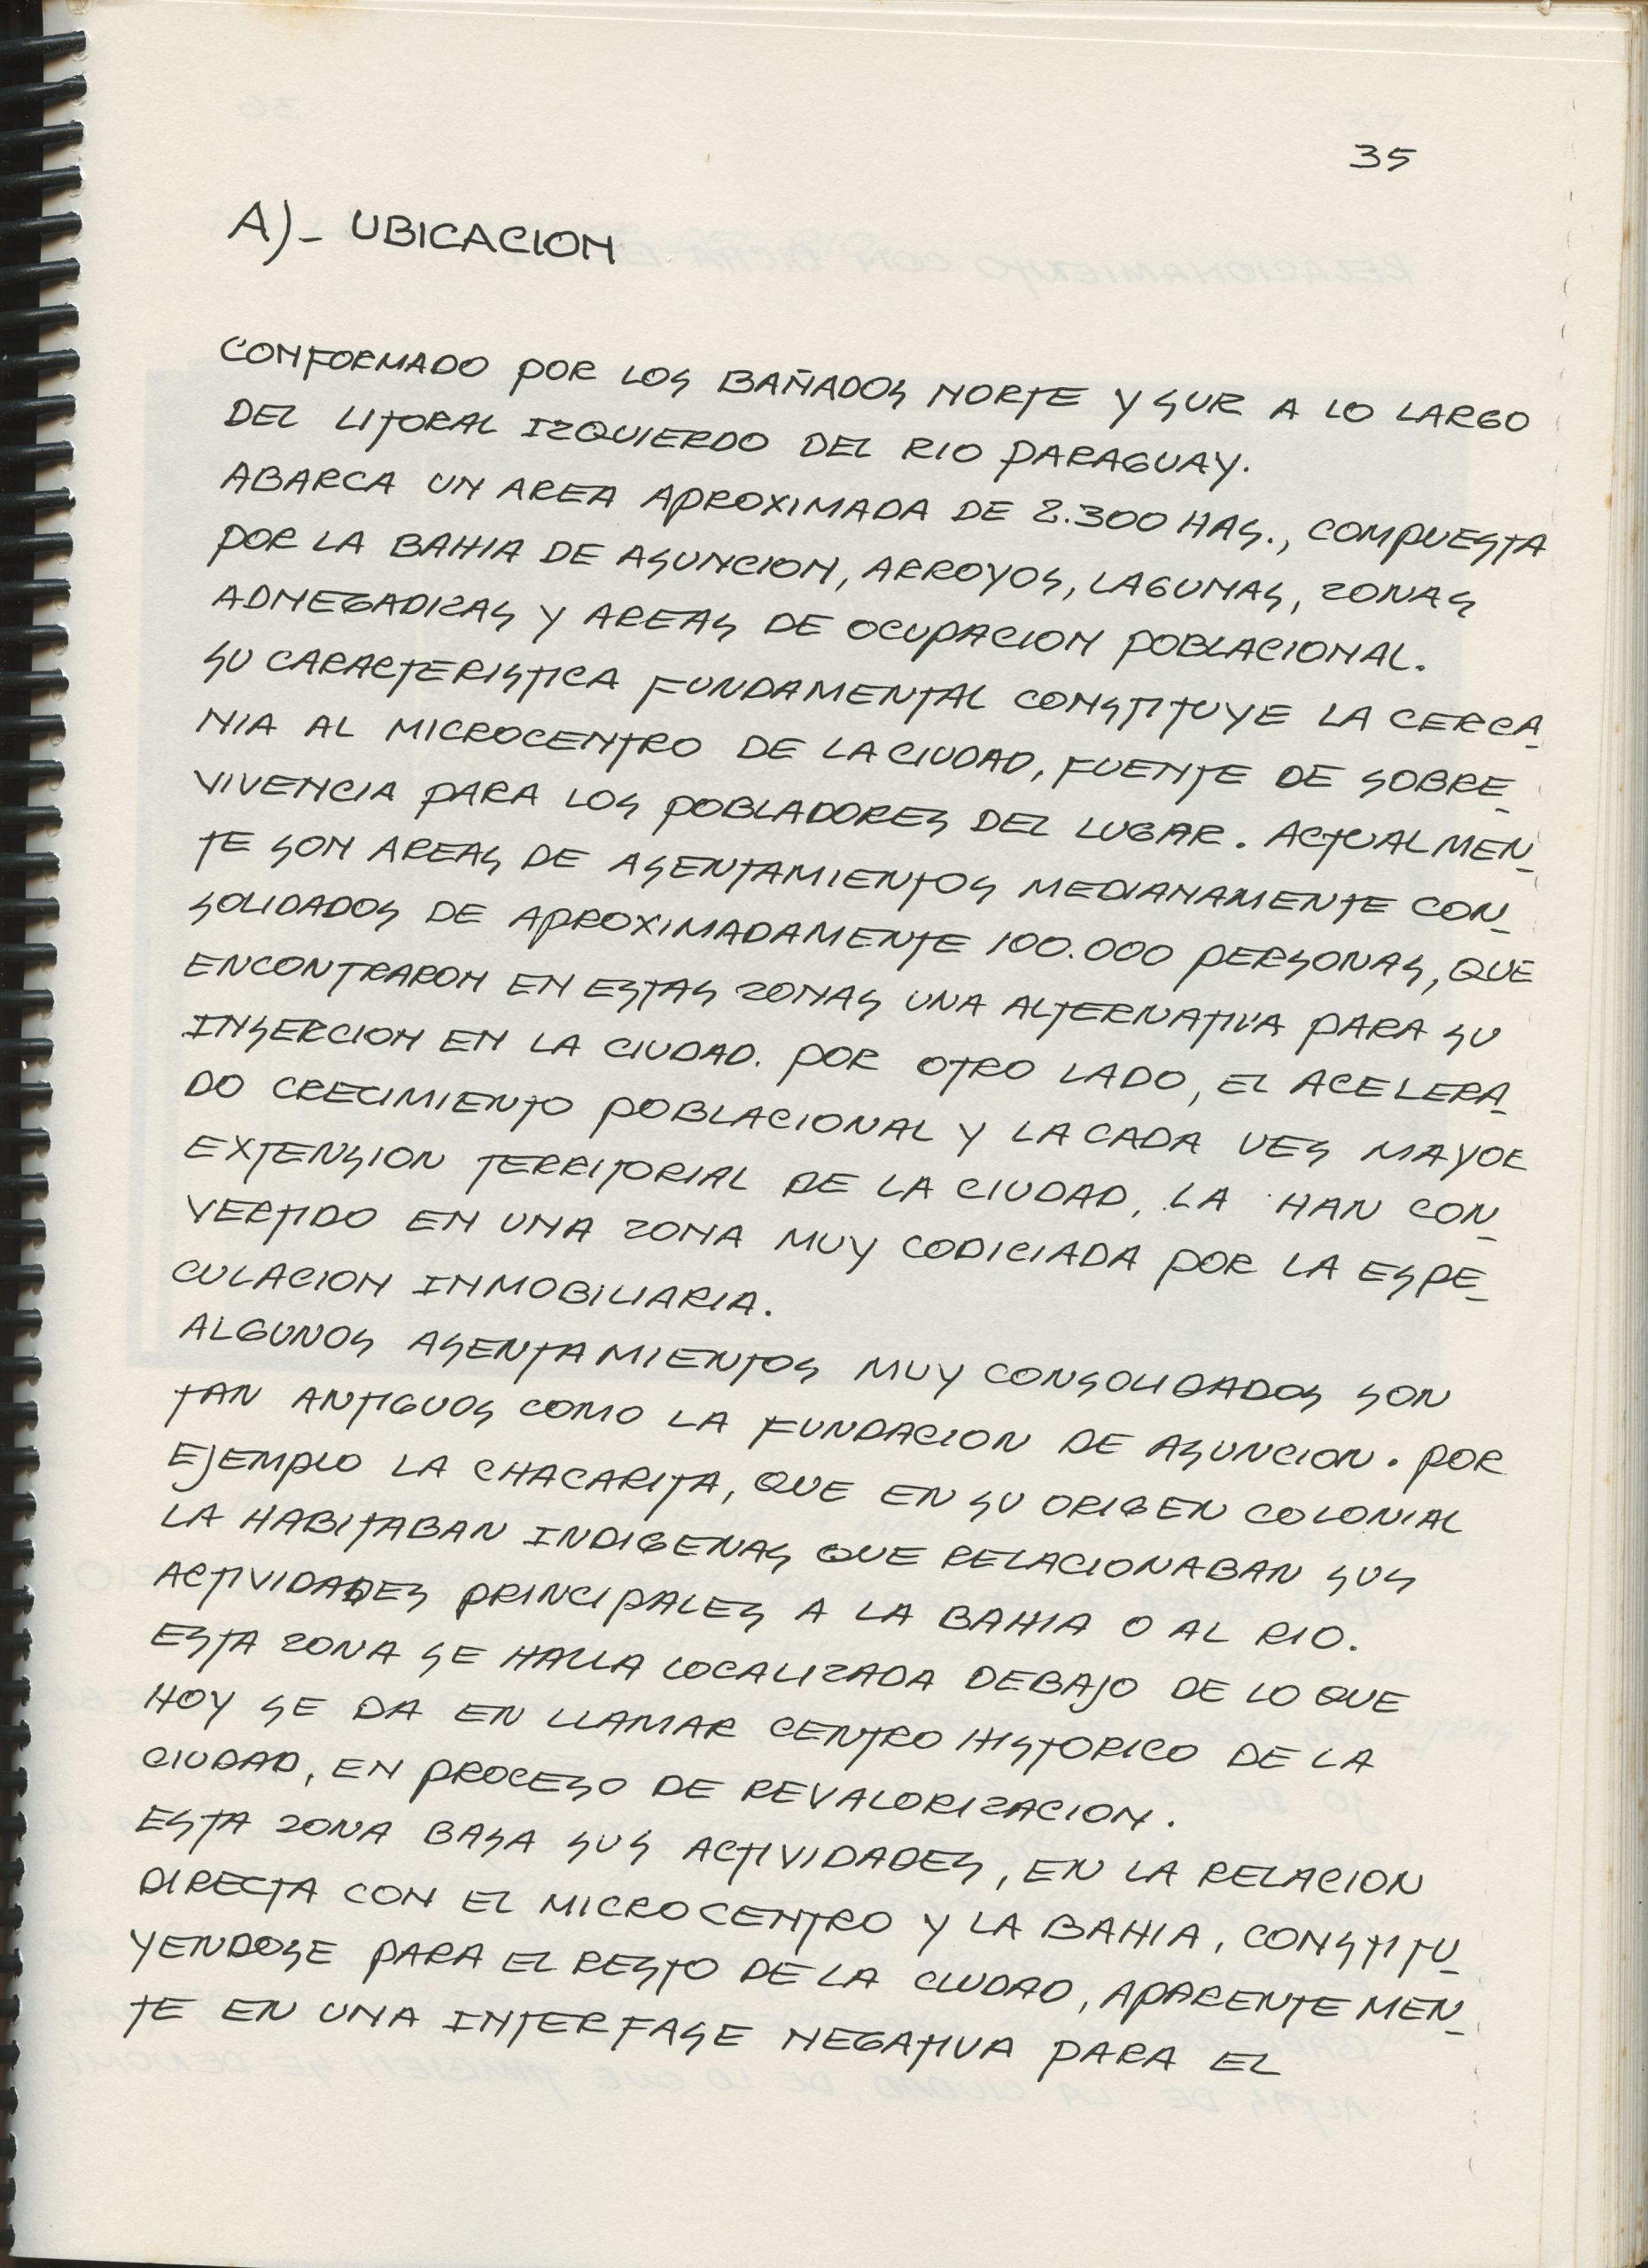 35
A)_ UBICACION
CONFORMADO POR LOS BAÑADOS NORTE Y SUR A LO LARGO
DEL LITORAL IZQUIERDO DEL RIO PARAGUAY.
ABARCA UN AREA APROXIMADA DE 2.300 HAS., COMPUESTA
POR LA BAHIA DE ASUNCION, ARROYOS, LAGUNAS, ZONAS
ADNEGADIZAS Y AREAS DE OCUPACION POBLACIONAL.
SU CARACTERISTICA FUNDAMENTAL CONSTITUYE LA CERCA_
NIA AL MICROCENTRO DE LA CIUDAD, FUENTE DE SOBRE_
VIVENCIA PARA LOS POBLADORES DEL LUGAR. ACTUALMEN_
TE SON AREAS DE ASENTAMIENTOS MEDIANAMENTE CON_
SOLIDADOS DE APROXIMADAMENTE 100.000 PERSONAS, QUE
ENCONTRARON EN ESTAS ZONAS UNA ALTERNATIVA PARA SU
INSERCION EN LA CIUDAD. POR OTRO LADO, EL ACELERA_
DO CRECIMIENTO POBLACIONAL Y LA CADA VES MAYOR
EXTENSION TERRITORIAL DE LA CIUDAD, LA HAN CON_
VERTIDO EN UNA ZONA MUY CODICIADA POR LA ESPE_
CULACION INMOBILIARIA.
ALGUNOS ASENTAMIENTOS MUY CONSOLIDADOS SON
TAN ANTIGUOS COMO LA FUNDACION DE ASUNCION. POR
EJEMPLO LA CHACARITA, QUE EN SU ORIGEN COLONIAL
LA HABITABAN INDIGENAS QUE RELACIONABAN SUS
ACTIVIDADES PRINCIPALES A LA BAHIA O AL RIO.
ESTA ZONA SE HALLA LOCALIZADA DEBAJO DE LO QUE
HOY SE DA EN LLAMAR CENTRO HISTORICO DE LA
CIUDAD, EN PROCESO DE REVALORIZACION.
ESTA ZONA BASA SUS ACTIVIDADES, EN LA RELACION
DIRECTA CON EL MICROCENTRO Y LA BAHIA, CONSTITU_
YENDOSE PARA EL RESTO DE LA CIUDAD, APARENTEMEN_
TE EN UNA INTERFASE NEGATIVA PARA EL